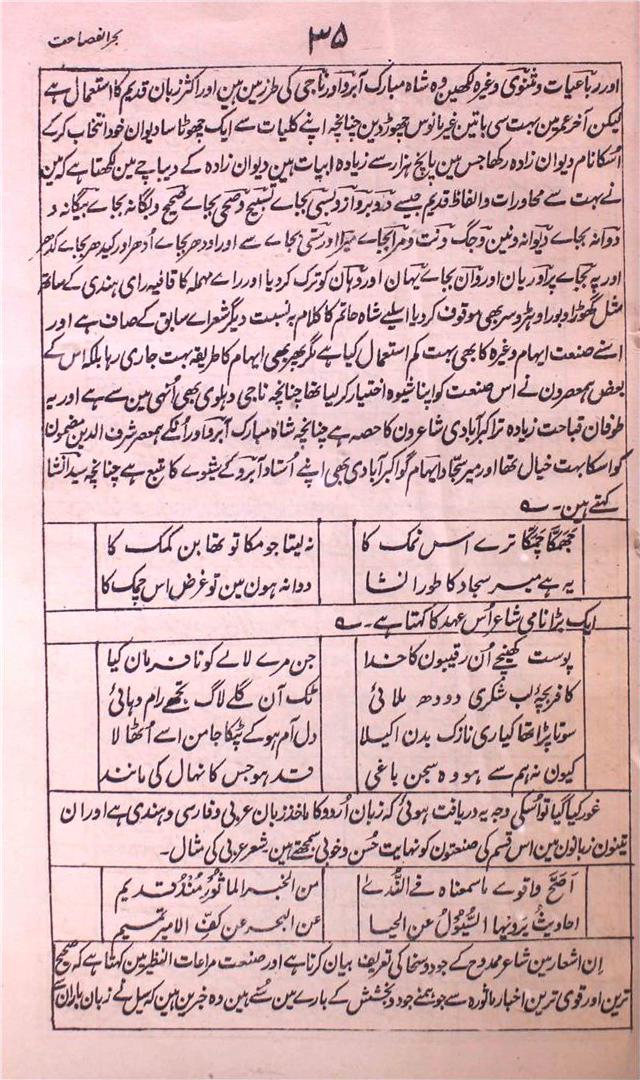 بحر الفصاحت
۳۵
اور رباعیات و مثنوی وغیرہ لکھین وہ شاہ مبارک آبرو اور ناجی کی طرز مین ہین اور اکثر زبان قدیم کا استعمال ہے
لیکن آخر عمر مین بہت سی باتین غیر مانوس چھوڑ دین چنانچہ اپنے کلیات سے ایک چھوٹا سا دیوان خود انتخاب کرکے
اُسکا نام دیوان زادہ رکھا جس مین پانچ ہزار سے زیادہ ابیات ہین دیوان زادہ کے دیباچے مین لکھتا ہے کہ مین
نے بہت سے محاورات و الفاظ قدیم جیسے در و بر و از و تسبی بجاے تسبیح و صحی بجاے صحیح و بگانہ بجاے بیگانہ و
دوانہ بجاے دیوانہ و نین و جگ و نت و مرا بجاے میرا اور ستی بجاے سے اور اودھر بجاے اُدھر اور کیدھر بجاے کدھر
اور پہ بجاے پر اور یان اور وان بجاے یہان اور وہان کو ترک کردیا اور راے مہملہ کا قافیہ راے ہندی کے ساتھ
مثل گھوڑا و بورا و ہڑ و سر بھی موقوف کردیا اسلیے شاہ حاتم کا کلام بہ نسبت دیگر شعراے سابق کے صاف ہے اور
اسنے صنعت ایہام وغیرہ کا بھی بہت کم استعمال کیا ہے مگر پھر بھی ایہام کا طریقہ بہت جاری رہا بلکہ اس کے
بعض ہمعصرون نے اس صنعت کو اپنا شیوہ اختیار کر لیا تھا چنانچہ ناجی دہلوی بھی اُنہی مین سے ہے اور یہ
طوفان قباحت زیادہ تر اکبرآبادی شاعرون کا حصہ ہے چنانچہ شاہ مبارک آبرو اور اُنکے ہمعصر شرف الدین مضمون
کو اسکا بہت خیال تھا اور میر سجاد ایہام گو اکبرآبادی بھی اپنے اُستاد آبرو کے شیوے کا متبع ہے چنانچہ سید انشا
کہتے ہین۔ ؎
مجھکا چٹکا ترے اس نمک کا نہ لیتا جو مکا تو تھا بن کمک کا
یہ ہے میر سجاد کا طور انشا دوانہ ہون مین تو غرض اس چمک کا
ایک بڑا نامی شاعر اُس عہد کا کہتا ہے۔ ؎
پوست کھینچے اُن رقیبون کا خدا جن مرے لالے کو نافرمان کیا
کافر بچۂ لب شکری دودھ ملائی ٹک آن گلے لاگ تجھے رام دہائی
سوتا پڑا تھا کیاری نازک بدن اکیلا دل آم ہو کے ٹپکا جامن اسے اُٹھا لا
کیون نہ ہم سے ہو وہ سجن باغی قد ہو جس کا نہال کی مانند
غور کیا گیا تو اُسکی وجہ یہ دریافت ہوئی کہ زبان اُردو کا ماخذ زبان عربی و فارسی و ہندی ہے اور ان
تینون زبانون مین اس قسم کی صنعتون کو نہایت حُسن و خوبی سمجھتے ہین۔ شعر عربی کی مثال۔
اَصَحُّ و اقوے ما سمعناہ فے النَّدےٰ من الخبر الماثور منذ قدیم
احادیثُ یرویہا السُّیولُ عن الحیا عن البحر عن کفِّ الامیر تمیم
اِن اشعار مین شاعر ممدوح کے جود و سخا کی تعریف بیان کرتا ہے اور صنعت مراعات النظیر مین کہتا ہے کہ صحیح
ترین اور قوی ترین اخبار ماثورہ سے جو ہمنے جود و بخشش کے بارے مین سُنے ہین وہ خبرین ہین کہ سیل نے زبان باران سے